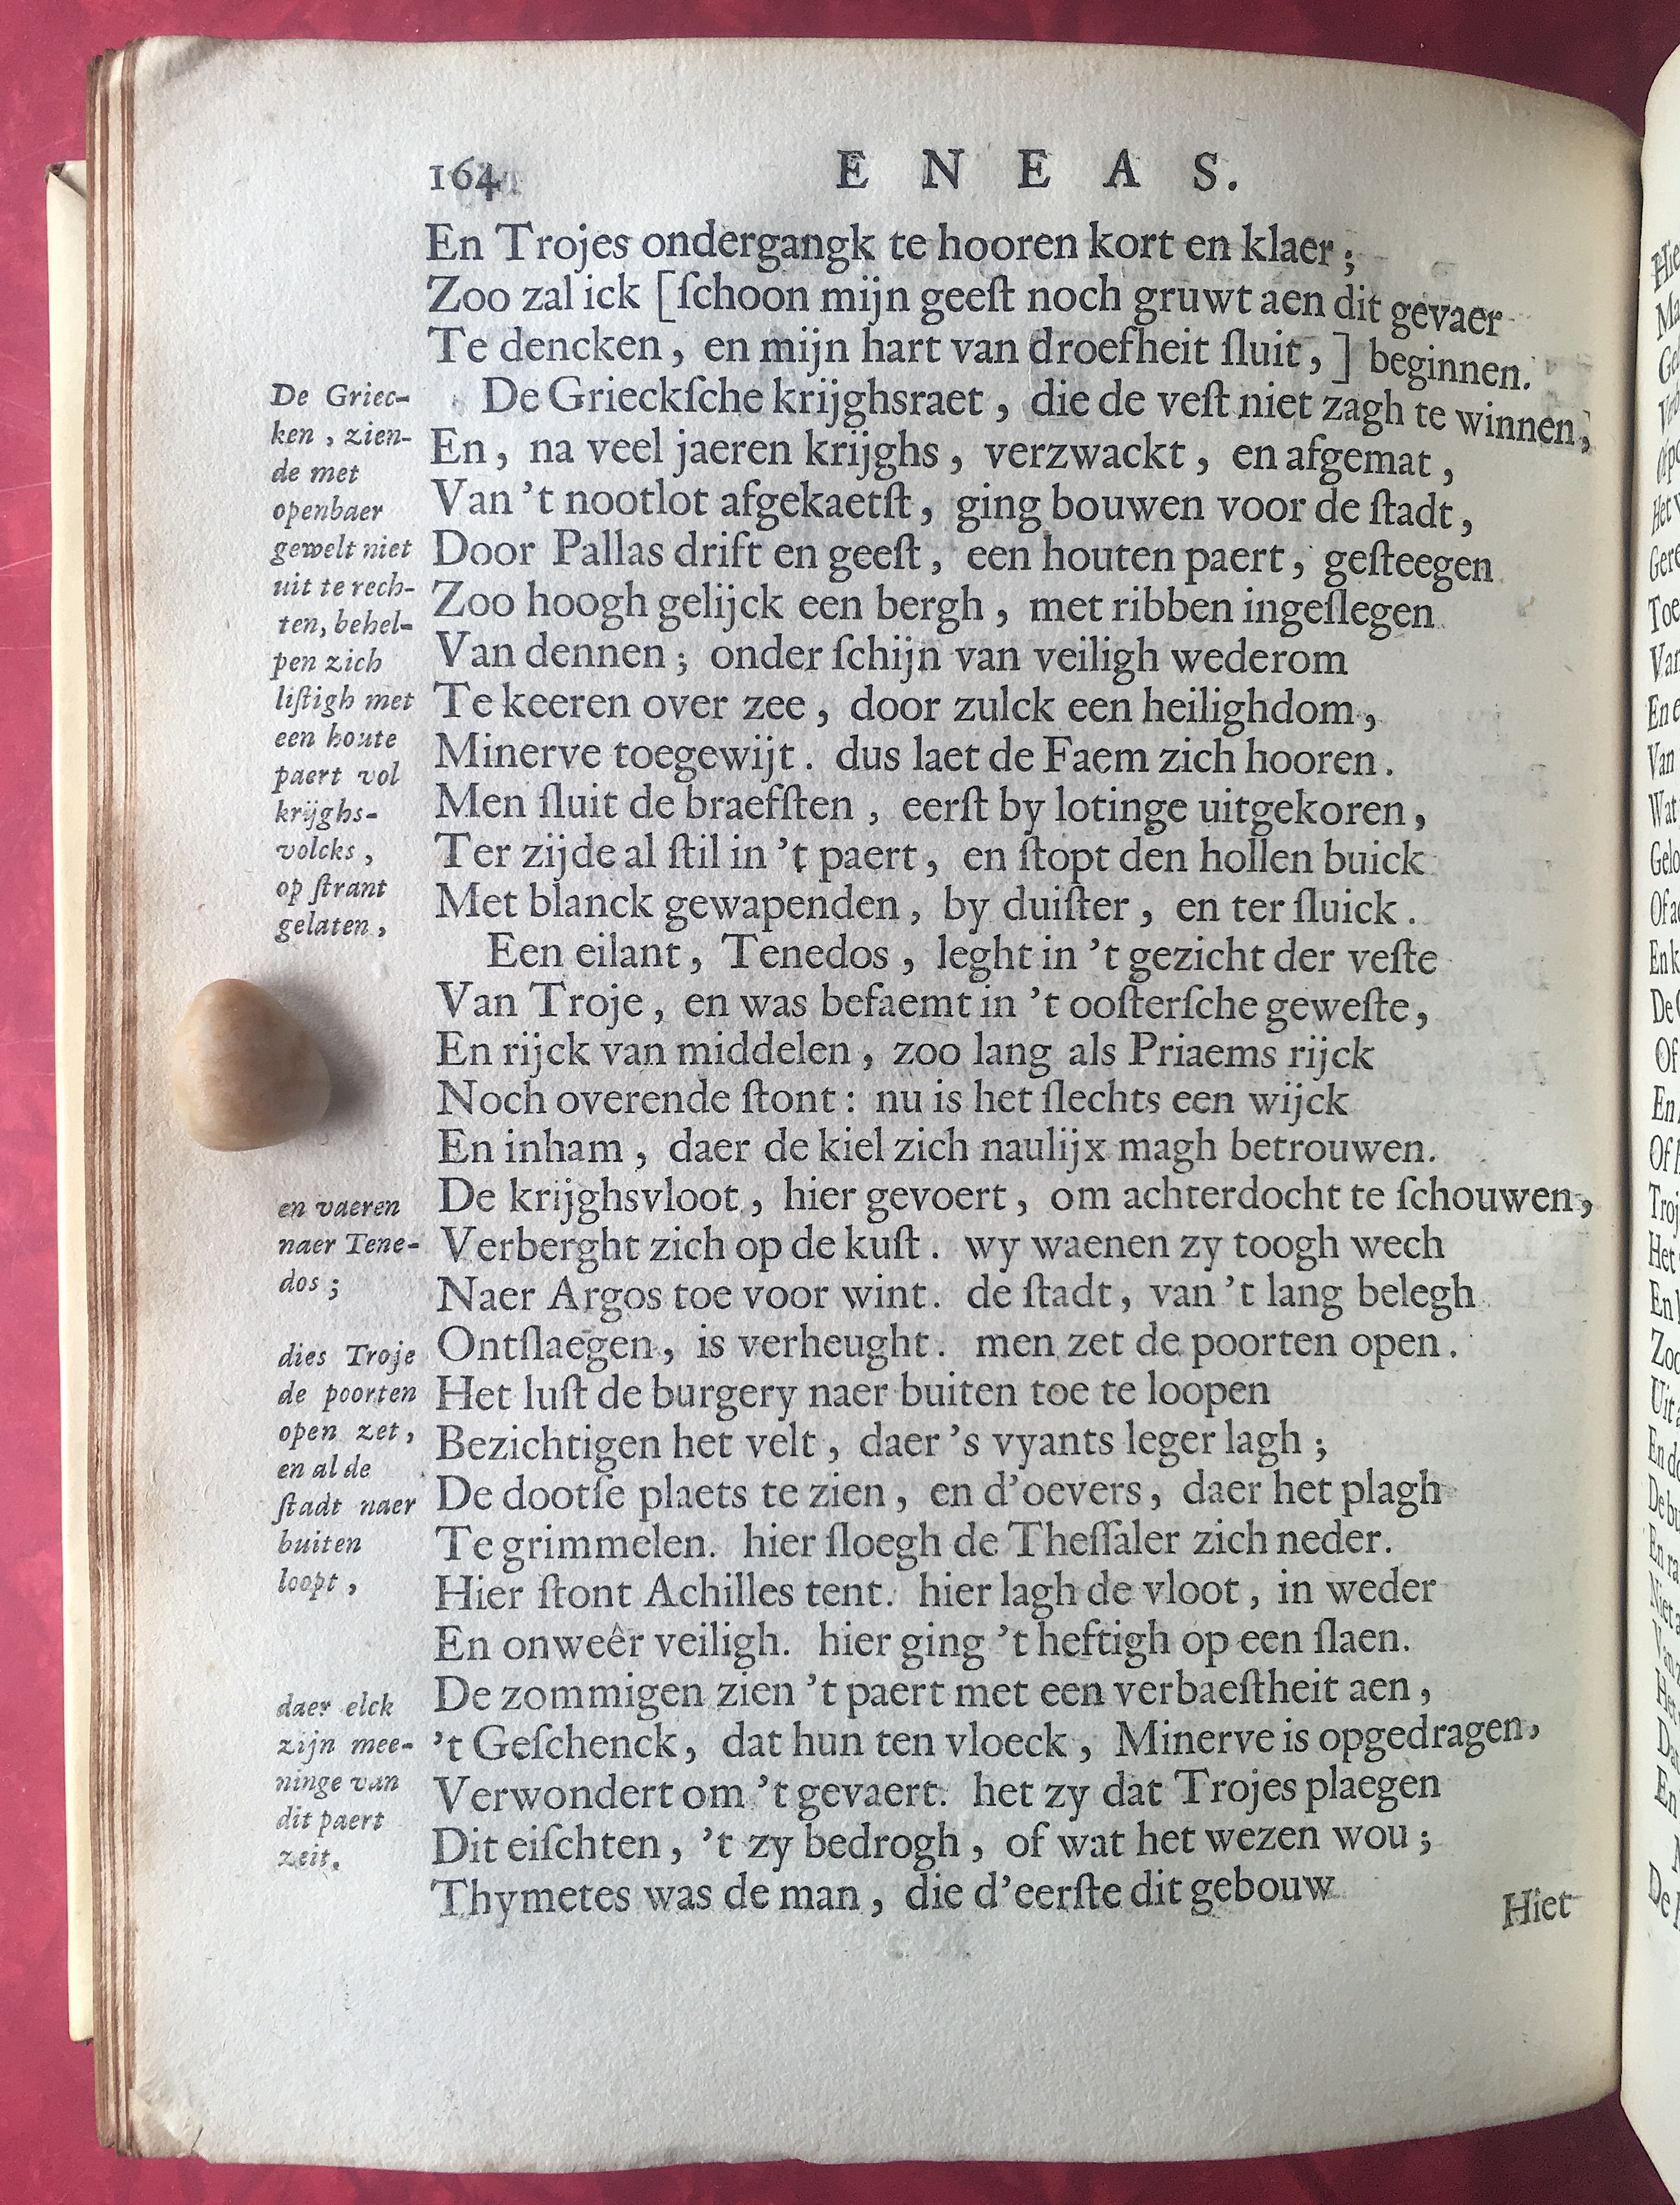 164
E N E A S.
En Trojes ondergangk te hooren kort en klaer;
Zoo zal ick [ſchoon mijn geeſt noch gruwt aen dit gevaer
Te dencken, en mijn hart van droefheit ſluit,] beginnen.
De Grieckſche krijghsraet, die de veſt niet zagh te winnen,
En, na veel jaeren krijghs, verzwackt, en afgemat,
Van 't nootlot afgekaetſt, ging bouwen voor de ſtadt,
Door Pallas drift en geeſt, een houten paert, geſteegen
Zoo hoogh gelijck een bergh, met ribben ingeſlegen
Van dennen; onder ſchijn van veiligh wederom
Te keeren over zee, door zulck een heilighdom,
Minerve toegewijt. dus laet de Faem zich hooren.
Men ſluit de braefſten, eerſt by lotinge uitgekoren,
Ter zijde al ſtil in 't paert, en ſtopt den hollen buick
Met blanck gewapenden, by duiſter, en ter ſluick.
Een eilant, Tenedos, leght in 't gezicht der veſte
Van Troje, en was befaemt in 't ooſterſche geweſte,
En rijck van middelen, zoo lang als Priaems rijck
Noch overende ſtont: nu is het ſlechts een wijck
En inham, daer de kiel zich naulijx magh betrouwen.
De krijghsvloot, hier gevoert, om achterdocht te ſchouwen,
Verberght zich op de kuſt. wy waenen zy toogh wech
Naer Argos toe voor wint. de ſtadt, van 't lang belegh
Ontſlaegen, is verheught. men zet de poorten open.
Het luſt de burgery naer buiten toe te loopen
Bezichtigen het velt, daer 's vyants leger lagh;
De dootſe plaets te zien, en d'oevers, daer het plagh
Te grimmelen. hier ſloegh de Theſſaler zich neder.
Hier ſtont Achilles tent. hier lagh de vloot, in weder
En onweêr veiligh. hier ging 't heftigh op een ſlaen.
De zommigen zien 't paert met een verbaeſtheit aen,
't Geſchenck, dat hun ten vloeck, Minerve is opgedragen,
Verwondert om 't gevaert. het zy dat Trojes plaegen
Dit eiſchten, 't zy bedrogh, of wat het wezen wou;
Thymetes was de man, die d'eerſte dit gebouw
Hiet
De Griec-
ken, zien-
de met
openbaer
gewelt niet
uit te rech-
ten, behel-
pen zich
liſtigh met
een houte
paert vol
krijghs-
volcks,
op ſtrant
gelaten,
en vaeren
naer Tene-
dos;
dies Troje
de poorten
open zet,
en al de
ſtadt naer
buiten
loopt,
daer elck
zijn mee-
ninge van
dit paert
zeit.